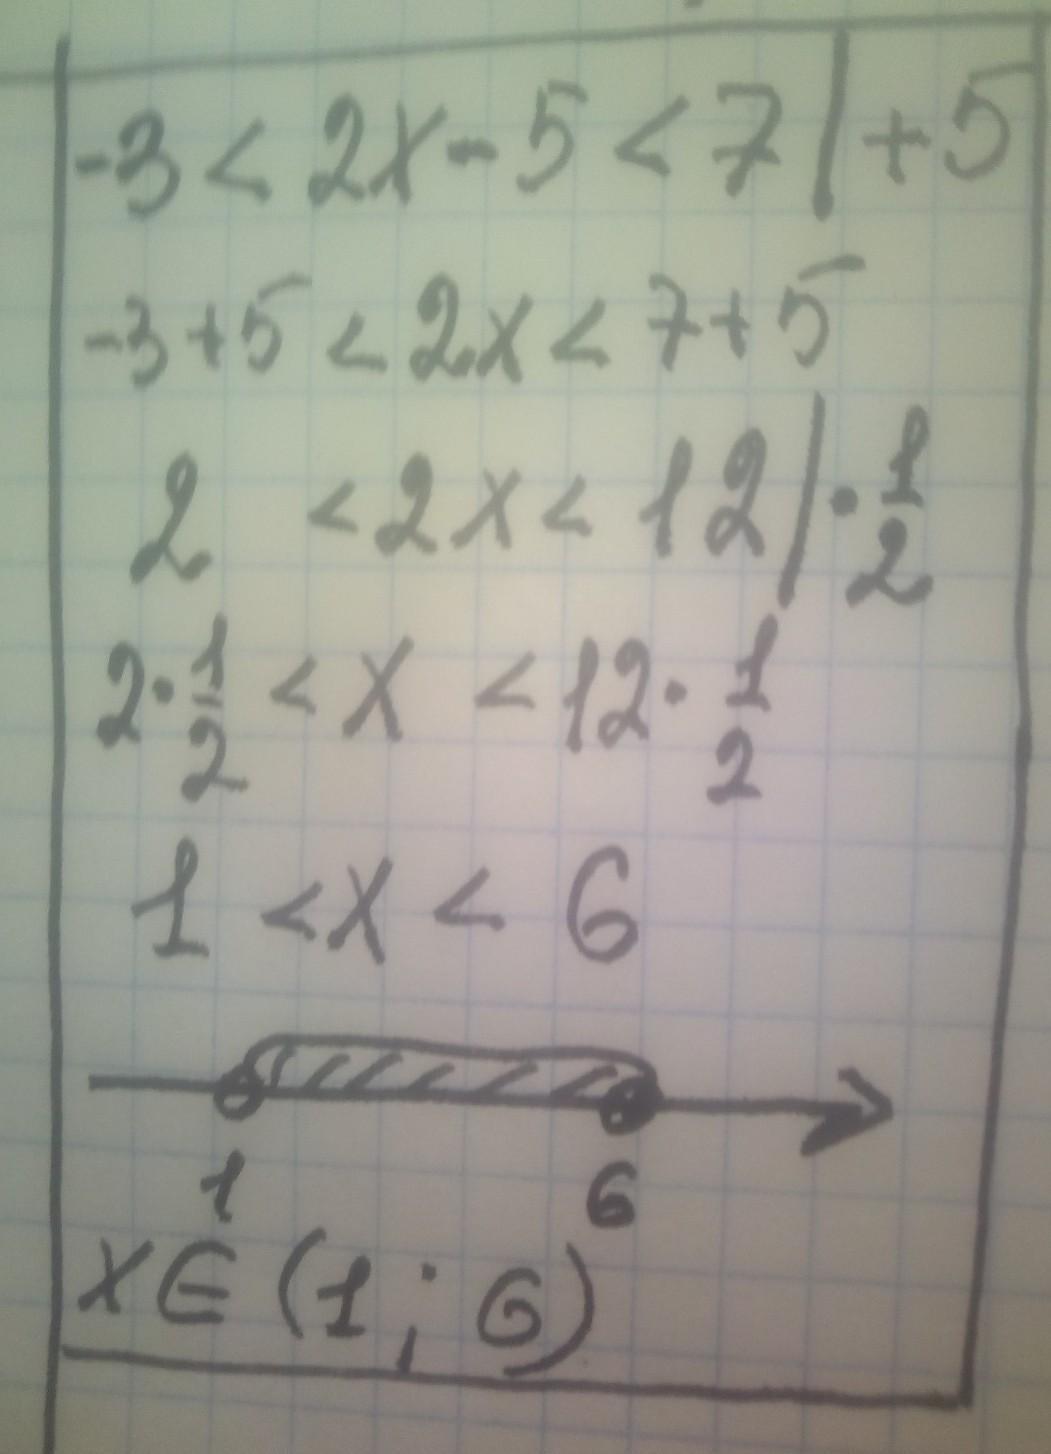 -3 < 2x - 5 < 7 | + 5
-3 + 5 < 2x < 7 + 5
2 < 2x < 12 | · 1/2
2 · 1/2 < x < 12 · 1/2
1 < x < 6
1 6
x ∈ (1 ; 6)